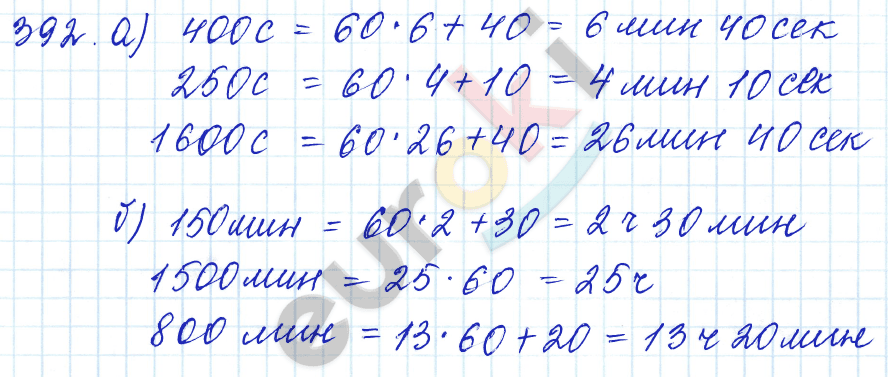 392. а) 400с = 60·6 + 40 = 6 мин 40 сек
250с = 60·4+10 = 4 мин 10 сек
1600с = 60·26+40 = 26 мин 40 сек
б) 150 мин = 60·2 +30 = 2 ч 30 мин
1500 мин = 25·60 = 25 ч
800 мин = 13·60+20 = 13 ч 20 мин
euroki